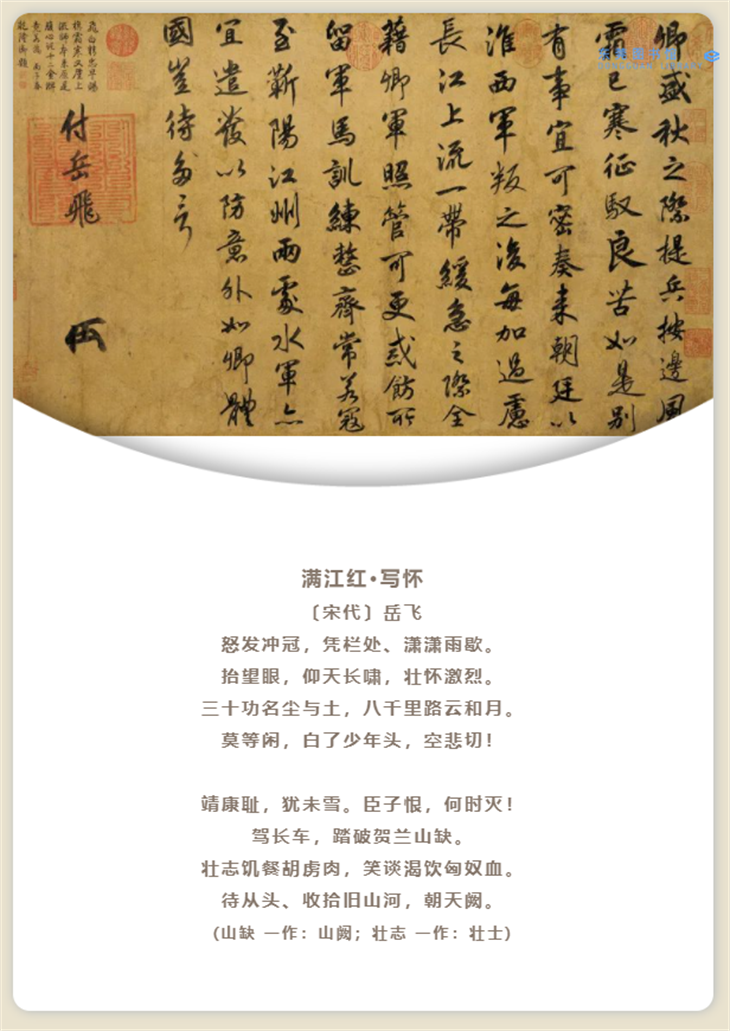 卿盛秋之際提兵按邊風
霜已寒征馭良苦如是別
有事宜可密奏来朝廷以
淮西軍叛之後每加過慮
長江上流一帶緩急之際全
藉卿軍照管可更戒飭所
留軍馬訓練整齊常若寇
至蘄陽江州兩處水軍亦
宜遣發以防意外如卿體
國豈待多言
付岳飛
满江红·写怀
〔宋代〕岳飞
怒发冲冠，凭栏处、潇潇雨歇。
抬望眼，仰天长啸，壮怀激烈。
三十功名尘与土，八千里路云和月。
莫等闲，白了少年头，空悲切！
靖康耻，犹未雪。臣子恨，何时灭！
驾长车，踏破贺兰山缺。
壮志饥餐胡虏肉，笑谈渴饮匈奴血。
待从头、收拾旧山河，朝天阙。
(山缺 一作：山阙；壮志 一作：壮士)